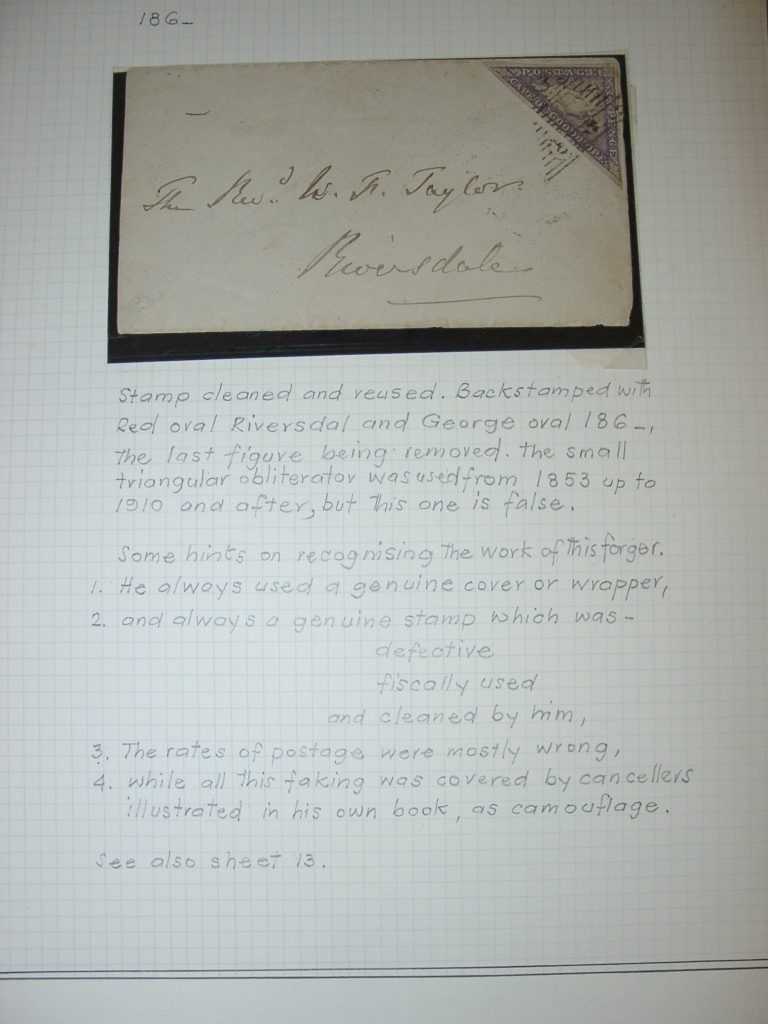 186_
POSTAGE
SIX PENCE
CAPE OF GOOD HOPE
The Revd. W. F. Taylor
Riversdale
Stamp cleaned and reused. Backstamped with
Red oval Riversdal and George oval 186_,
the last figure being removed. the small
triangular obliterator was used from 1853 up to
1910 and after, but this one is false.
Some hints on recognising the work of this forger.
1. He always used a genuine cover or wrapper,
2. and always a genuine stamp which was-
defective
fiscally used
and cleaned by him,
3. The rates of postage were mostly wrong,
4. while all this faking was covered by cancellers
illustrated in his own book, as camouflage.
See also sheet 13.